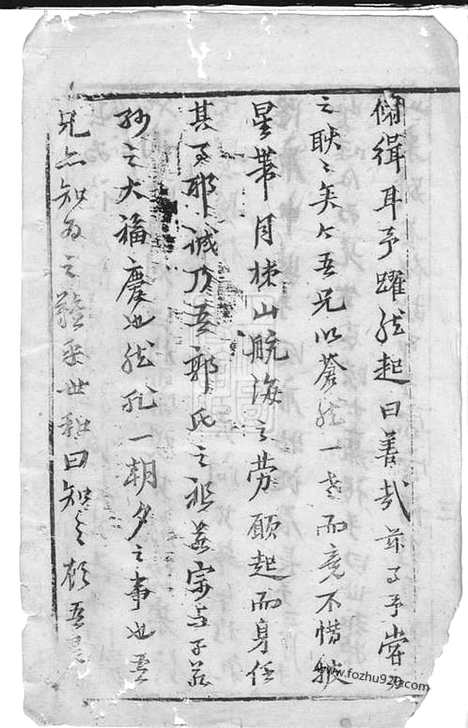 緝耳予躍然起曰善哉兹事予嘗為
之耿々矣今吾兄以蒼然一老而竟不惜披
星帶月梯山航海之勞願起而身任
其事耶誠乃吾郭氏之祖若宗与子若
孫之大福慶也然非一朝夕之事也吾
兄亦知為之難乎世報曰知之顧吾
www.fozhu920.com